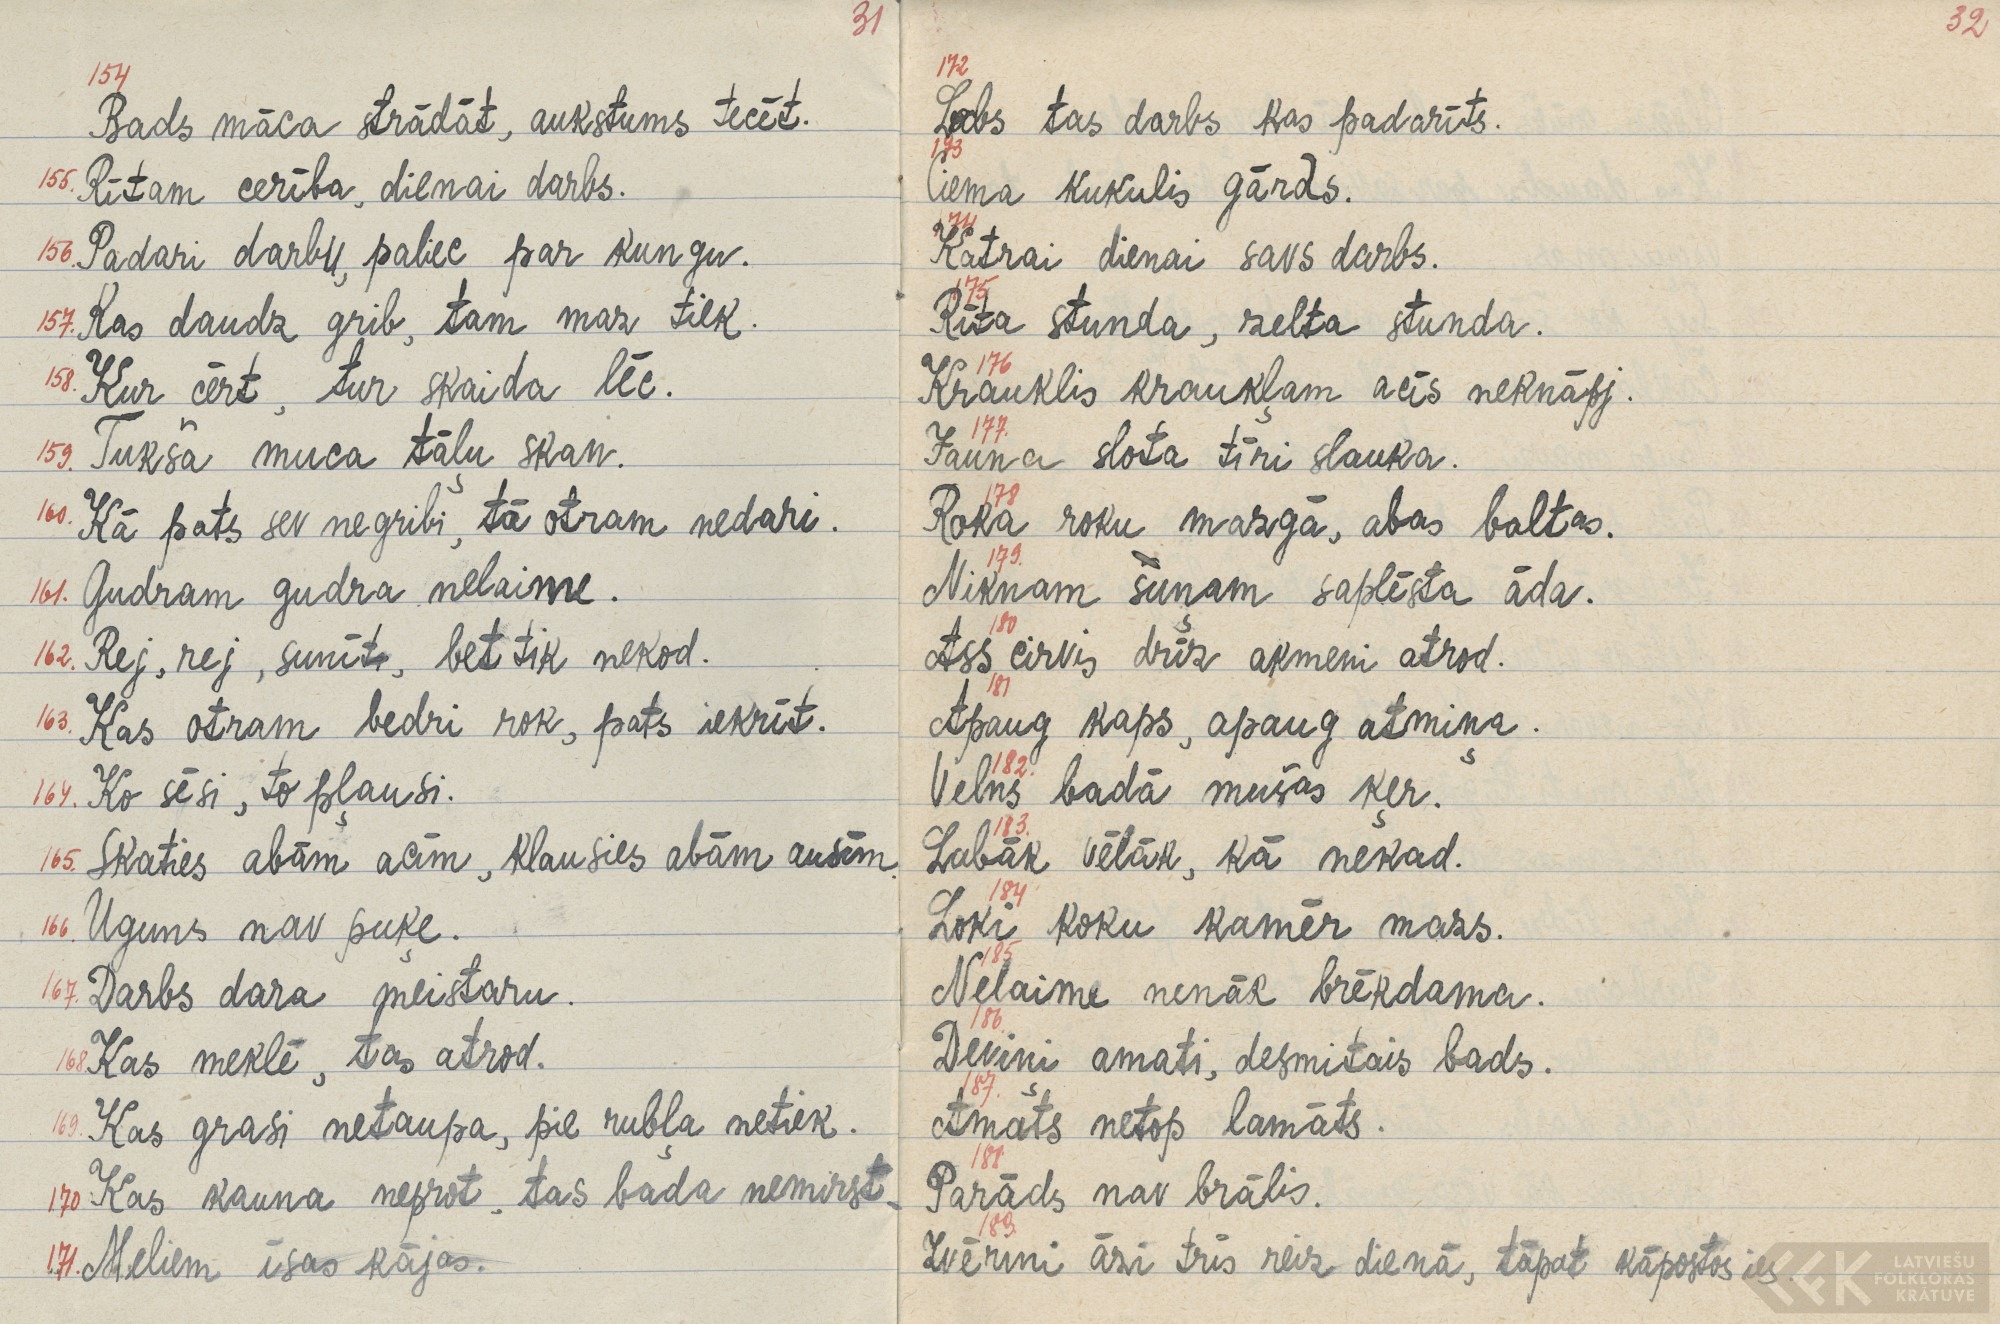 31
154
Bads māca strādāt, aukstums tecēt.
155. Rītam cerība, dienai darbs.
156. Padari darbu, paliec par kungu.
157. Kas daudz grib, tam maz tiek.
158. Kur cērt, tur skaida lēc.
159. Tukša muca tāļu skan.
160. Kā pats sev negribi, tā otram nedari.
161. Gudram gudra nelaime.
162. Rej, rej, sunīt, bet tik nekod.
163. Kas otram bedri rok, pats iekrīt.
164. Ko sēsi, to pļausi.
165. Skaties abām acīm, klausies abām ausīm.
166. Uguns nav puķe.
167. Darbs dara meistaru.
168. Kas meklē, tas atrod.
169. Kas grasi netaupa, pie rubļa netiek.
170 Kas kauna neprot, tas bada nemirst.
171. Meliem īsas kājas.
32
172
Labs tas darbs kas padarīts.
173
Ciema kukulis gārds.
174
Katrai dienai savs darbs.
175
Rīta stunda, zelta stunda.
176
Krauklis kraukļam acīs neknābj.
177.
Jauna slota tīri slauka.
178
Roka roku mazgā, abas baltas.
179.
Niknam suņam saplēsta āda.
180
Ass cirvis drīz akmeni atrod.
181
Apaug kaps, apaug atmiņa.
182.
Velns badā mušas ķer.
183.
Labāk vēlāk, kā nekad.
184
Loki koku kamēr mazs.
185
Nelaime nenāk brēkdama.
186.
Deviņi amati, desmitais bads.
187.
Amats netop lamāts.
188
Parāds nav brālis.
189.
Zvērini āzi trīs reiz dienā, tāpat kāpostos ies.
LATVIEŠU
FOLKLORAS
KRĀTUVE